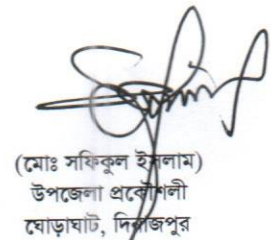 (মোঃ সফিকুল ইসলাম)
উপজেলা প্রকৌশলী
ঘোড়াঘাট, দিনাজপুর